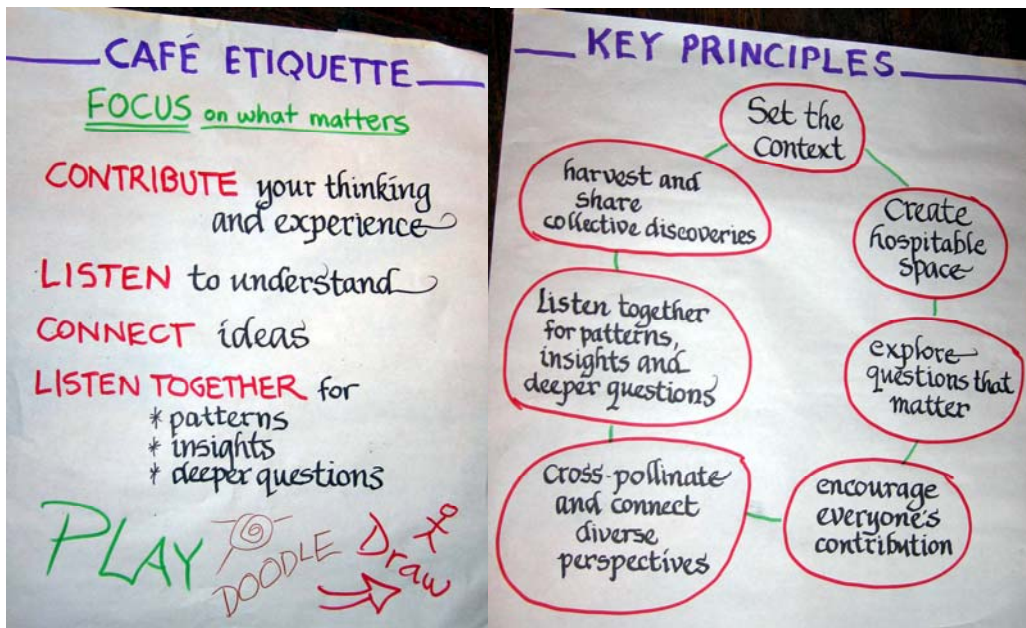 CAFÉ ETIQUETTE
FOCUS on what matters
CONTRIBUTE your thinking
and experience
LISTEN to understand
CONNECT ideas
LISTEN TOGETHER for
* patterns
* insights
* deeper questions
PLAY
DOODLE
Draw
KEY PRINCIPLES
Set the
Context
Create
hospitable
space
explore
questions that
matter
encourage
everyone's
contribution
cross-pollinate
and connect
diverse
perspectives
Listen together
for patterns,
insights and
deeper questions
harvest and
share
collective discoveries